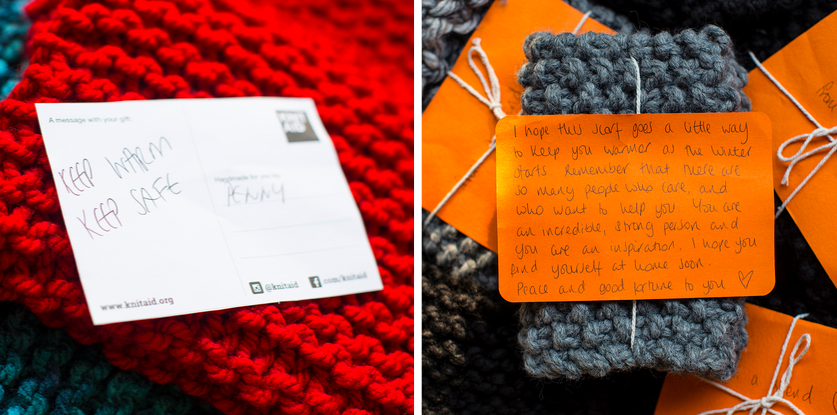 A message with your gift:
KEEP WARM
KEEP SAFE
Handmade for you by:
PENNY
www.knitaid.org
@knitaid
.com/knitaid
KNIT
AID
I hope this scarf goes a little way
to keep you warmer as the winter
starts. Remember that there are
so many people who care, and
who want to help you. You are
an incredible, strong person and
you are an inspiration. I hope you
find yourself at home soon.
Peace and good fortune to you ♡
a
end